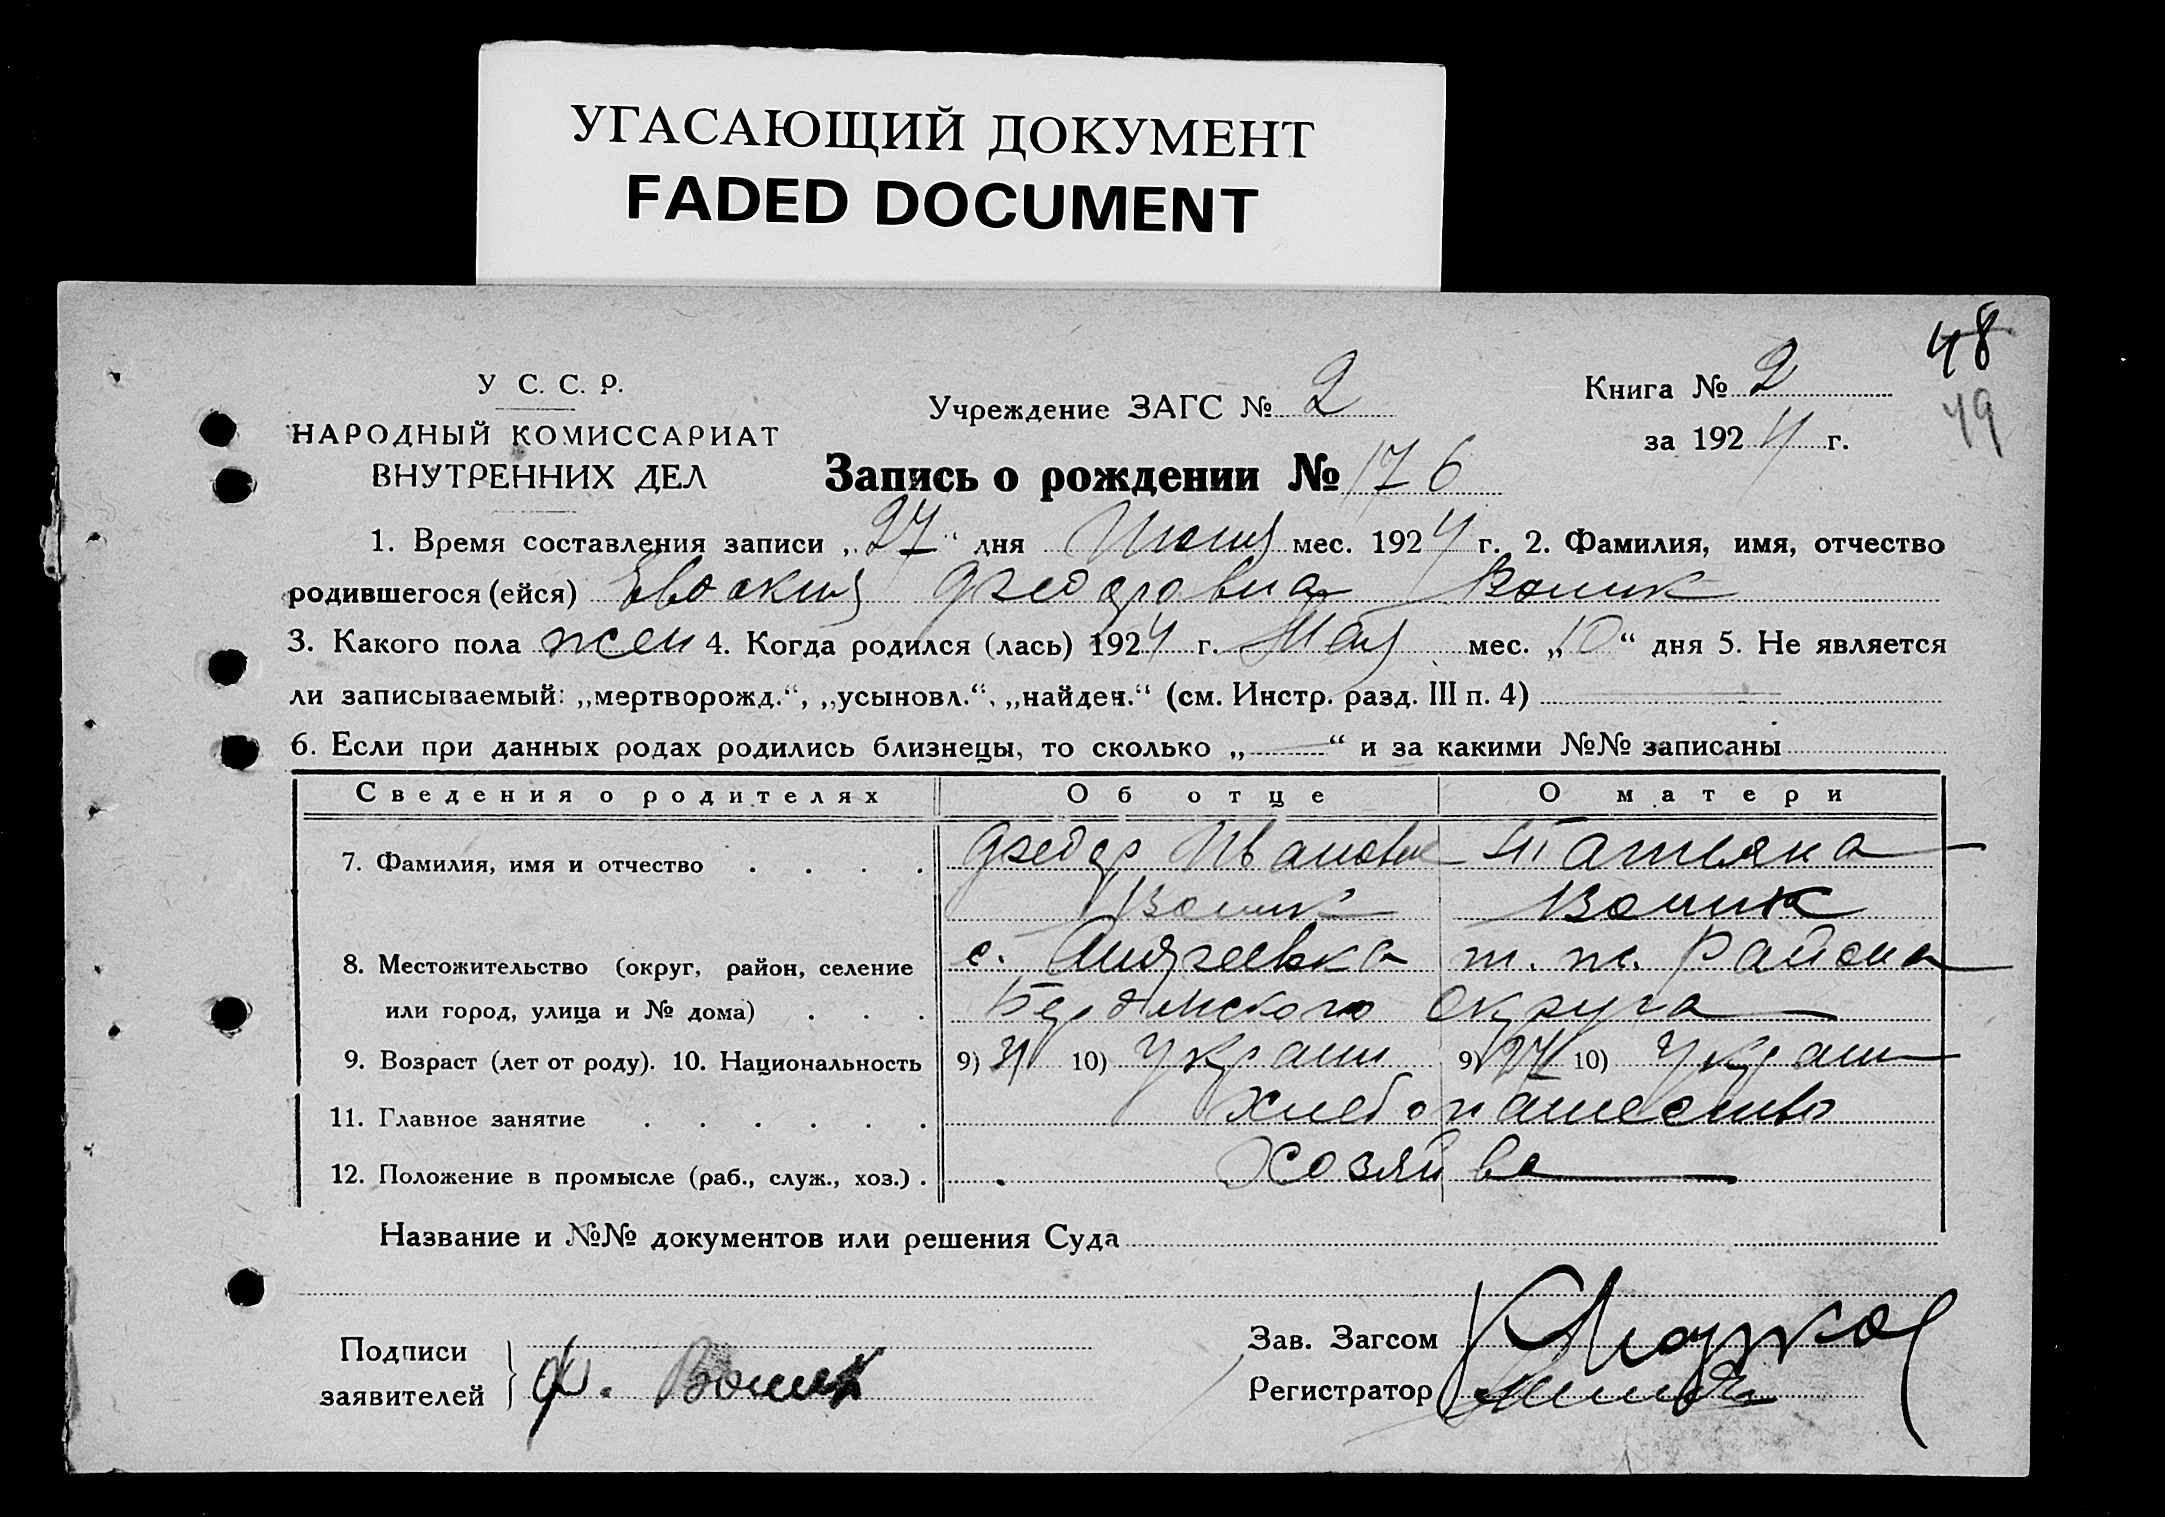 УГАСАЮЩИЙ ДОКУМЕНТ
FADED DOCUMENT
48
49
У С. С. Р.
НАРОДНЫЙ КОМИССАРИАТ
ВНУТРЕННИХ ДЕЛ
Учреждение ЗАГС № 2
Книга № 2
за 1924 г.
Запись о рождении № 176
1. Время составления записи „27“ дня Июня мес. 1924 г. 2. Фамилия, имя, отчество
родившегося (ейся) Евдокия Феодоровна Волик
3. Какого пола жен 4. Когда родился (лась) 1924 г. Мая мес. „10“ дня 5. Не является
ли записываемый: „мертворожд.“, „усыновл.“, „найден.“ (см. Инстр. разд. III п. 4)
6. Если при данных родах родились близнецы, то сколько „—“ и за какими №№ записаны
Сведения о родителях Об отце О матери
7. Фамилия, имя и отчество . . . . Феодор Иванович Татьяна
Волик Волик
8. Местожительство (округ, район, селение с. Андреевка т. ж. Района
или город, улица и № дома) . . . Бердянского Округа
9. Возраст (лет от роду). 10. Национальность 9) 31 10) Украин 9) 27 10) Украин
11. Главное занятие . . . . . . Хлебопашество
12. Положение в промысле (раб., служ., хоз.) . Хозяйва
Название и №№ документов или решения Суда
Подписи
заявителей
Ф. Волик
Зав. Загсом
Регистратор